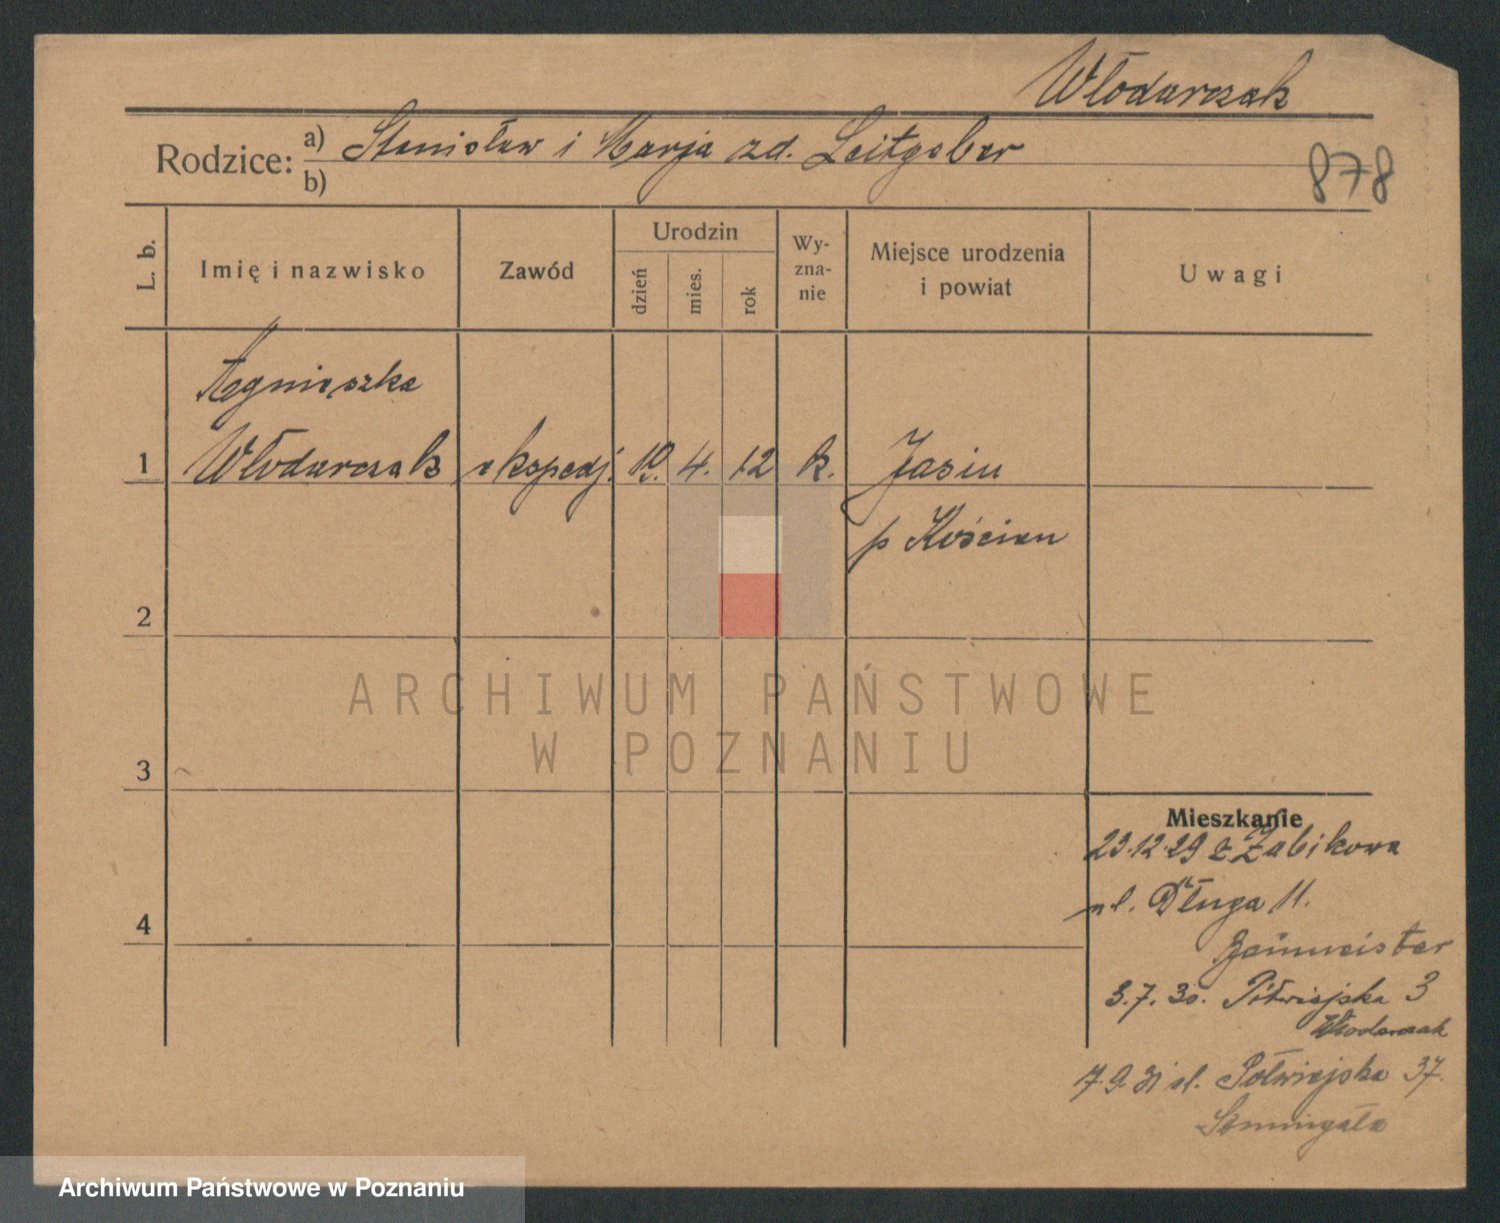 Włodarczak
Rodzice: a) Stanisław i Marja zd. Leitgeber
b)
878
L. b.
Imię i nazwisko
Zawód
Urodzin
dzień
mies.
rok
Wy-
zna-
nie
Miejsce urodzenia
i powiat
Uwagi
Agnieszka
1 Włodarczak ekspedj. 10. 4. 12 k. Jasin
p Kościan
2
ARCHIWUM PAŃSTWOWE
W POZNANIU
3
Mieszkanie
23.12.29 z Żabikowa
ul. Długa 11.
4
3.7.30. Półwiejska 3
Włodarczak
7.9.31 ul. Półwiejska 37.
Archiwum Państwowe w Poznaniu